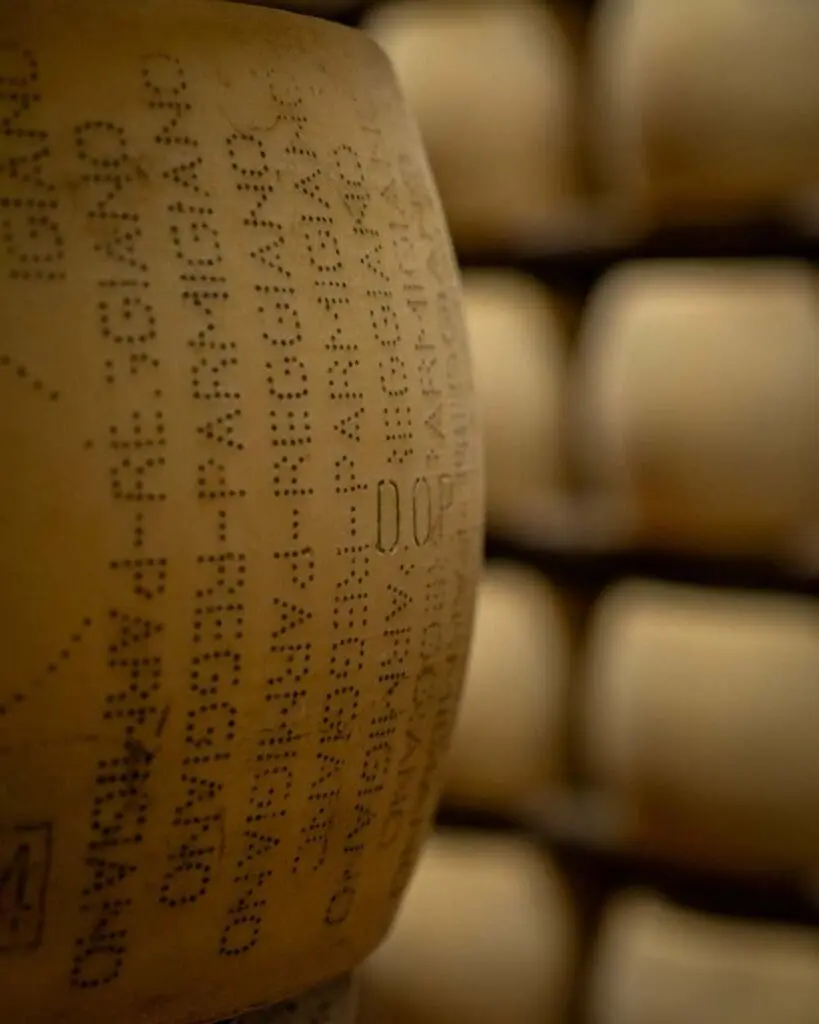 IGIANO
PARMIGIANO-REGGIANO
REGGIANO-PARMIGIANO
PARMIGIANO-REGGIANO
REGGIANO-PARMIGIANO
PARMIGIANO REGGIANO
DOP